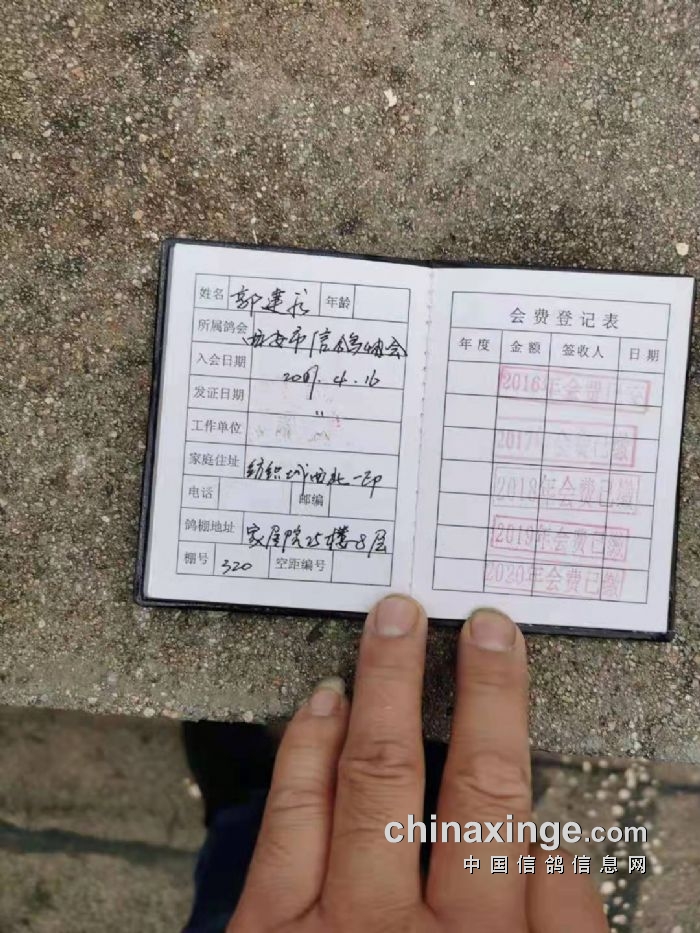 姓名 郭建 年龄
所属鸽会 西安市信鸽协会
入会日期 2009.4.16
发证日期 〃
工作单位
家庭住址 纺织城西北一印
电话 邮编
鸽棚地址 家属院25楼8层
棚号 320 空距编号
会费登记表
年度 金额 签收人 日期
2016年会费已缴
2017年会费已缴
2018年会费已缴
2019年会费已缴
2020年会费已缴
chinaxinge.com
中国信鸽信息网